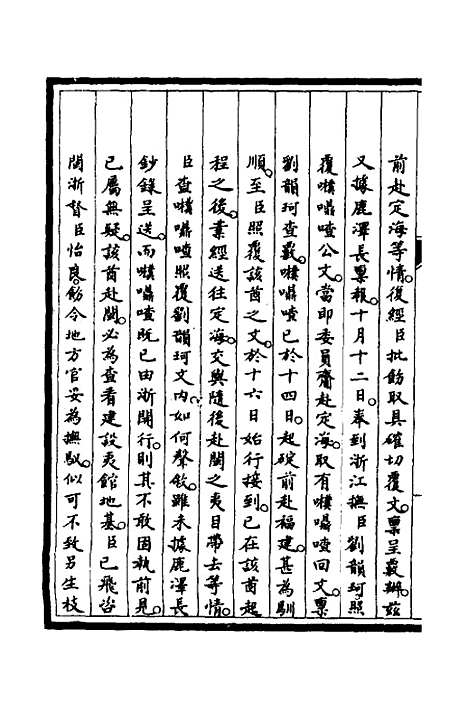 前赴定海等情。復經臣批飭取具確切覆文。稟呈覈辦。茲
又據鹿澤長稟報。十月十二日。奉到浙江撫臣劉韻珂。照
覆㗖囁喳公文。當即委員齎赴定海。取有㗖囁喳回文。稟
劉韻珂查覈。㗖囁喳已於十四日。起碇前赴福建。甚為馴
順。至臣照覆該酋之文。於十六日始行接到。已在該酋起
程之後。業經送往定海。交與隨後赴閩之夷目帶去等情。
臣查㗖囁喳照覆劉韻珂文內。如何聲敘。雖未據鹿澤長
鈔錄呈送。而㗖囁喳既已由浙開行。則其不敢固執前見。
已屬無疑。該酋赴閩。必為查看建設夷館地基。臣已飛咨
閩浙督臣怡良。飭令地方官妥為撫馭。似可不致另生枝